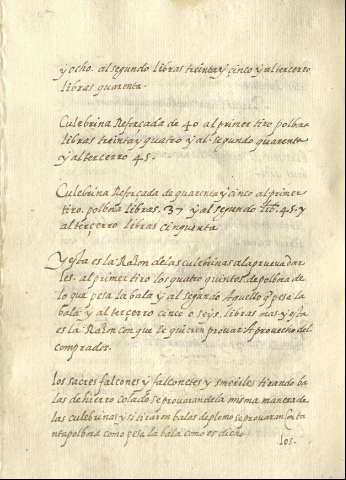 y ocho. al segundo libras treinta y cinco y al tercero
libras quarenta.
Culebrina Reforcada de 40 al primer tiro polbora
libras treinta y quatro y al segundo quarenta
y al tercero 45.
Culebrina Reforcada de quarenta y cinco al primer
tiro. polbora libras. 37 y al segundo lib. 45. y
al tercero libras cinquenta
Y esta es la Raçon de las culebrinas a la prueva dar
les. al primer tiro los quatro quintos de polbora de
lo que pesa la bala y al segundo Aquello q pesa la
bala y al tercero cinco o seys. libras mas y esta
es la Raçon con que se quieren provar A provecho del
comprador.
los sacres falcones y falconetes y smeriles tirando ba
las de hierro colado se provaran de la misma manera de
las culebrinas y si tiraren balas de plomo se provaran con ta
nta polbora como pesa la bala como es dicho
los.